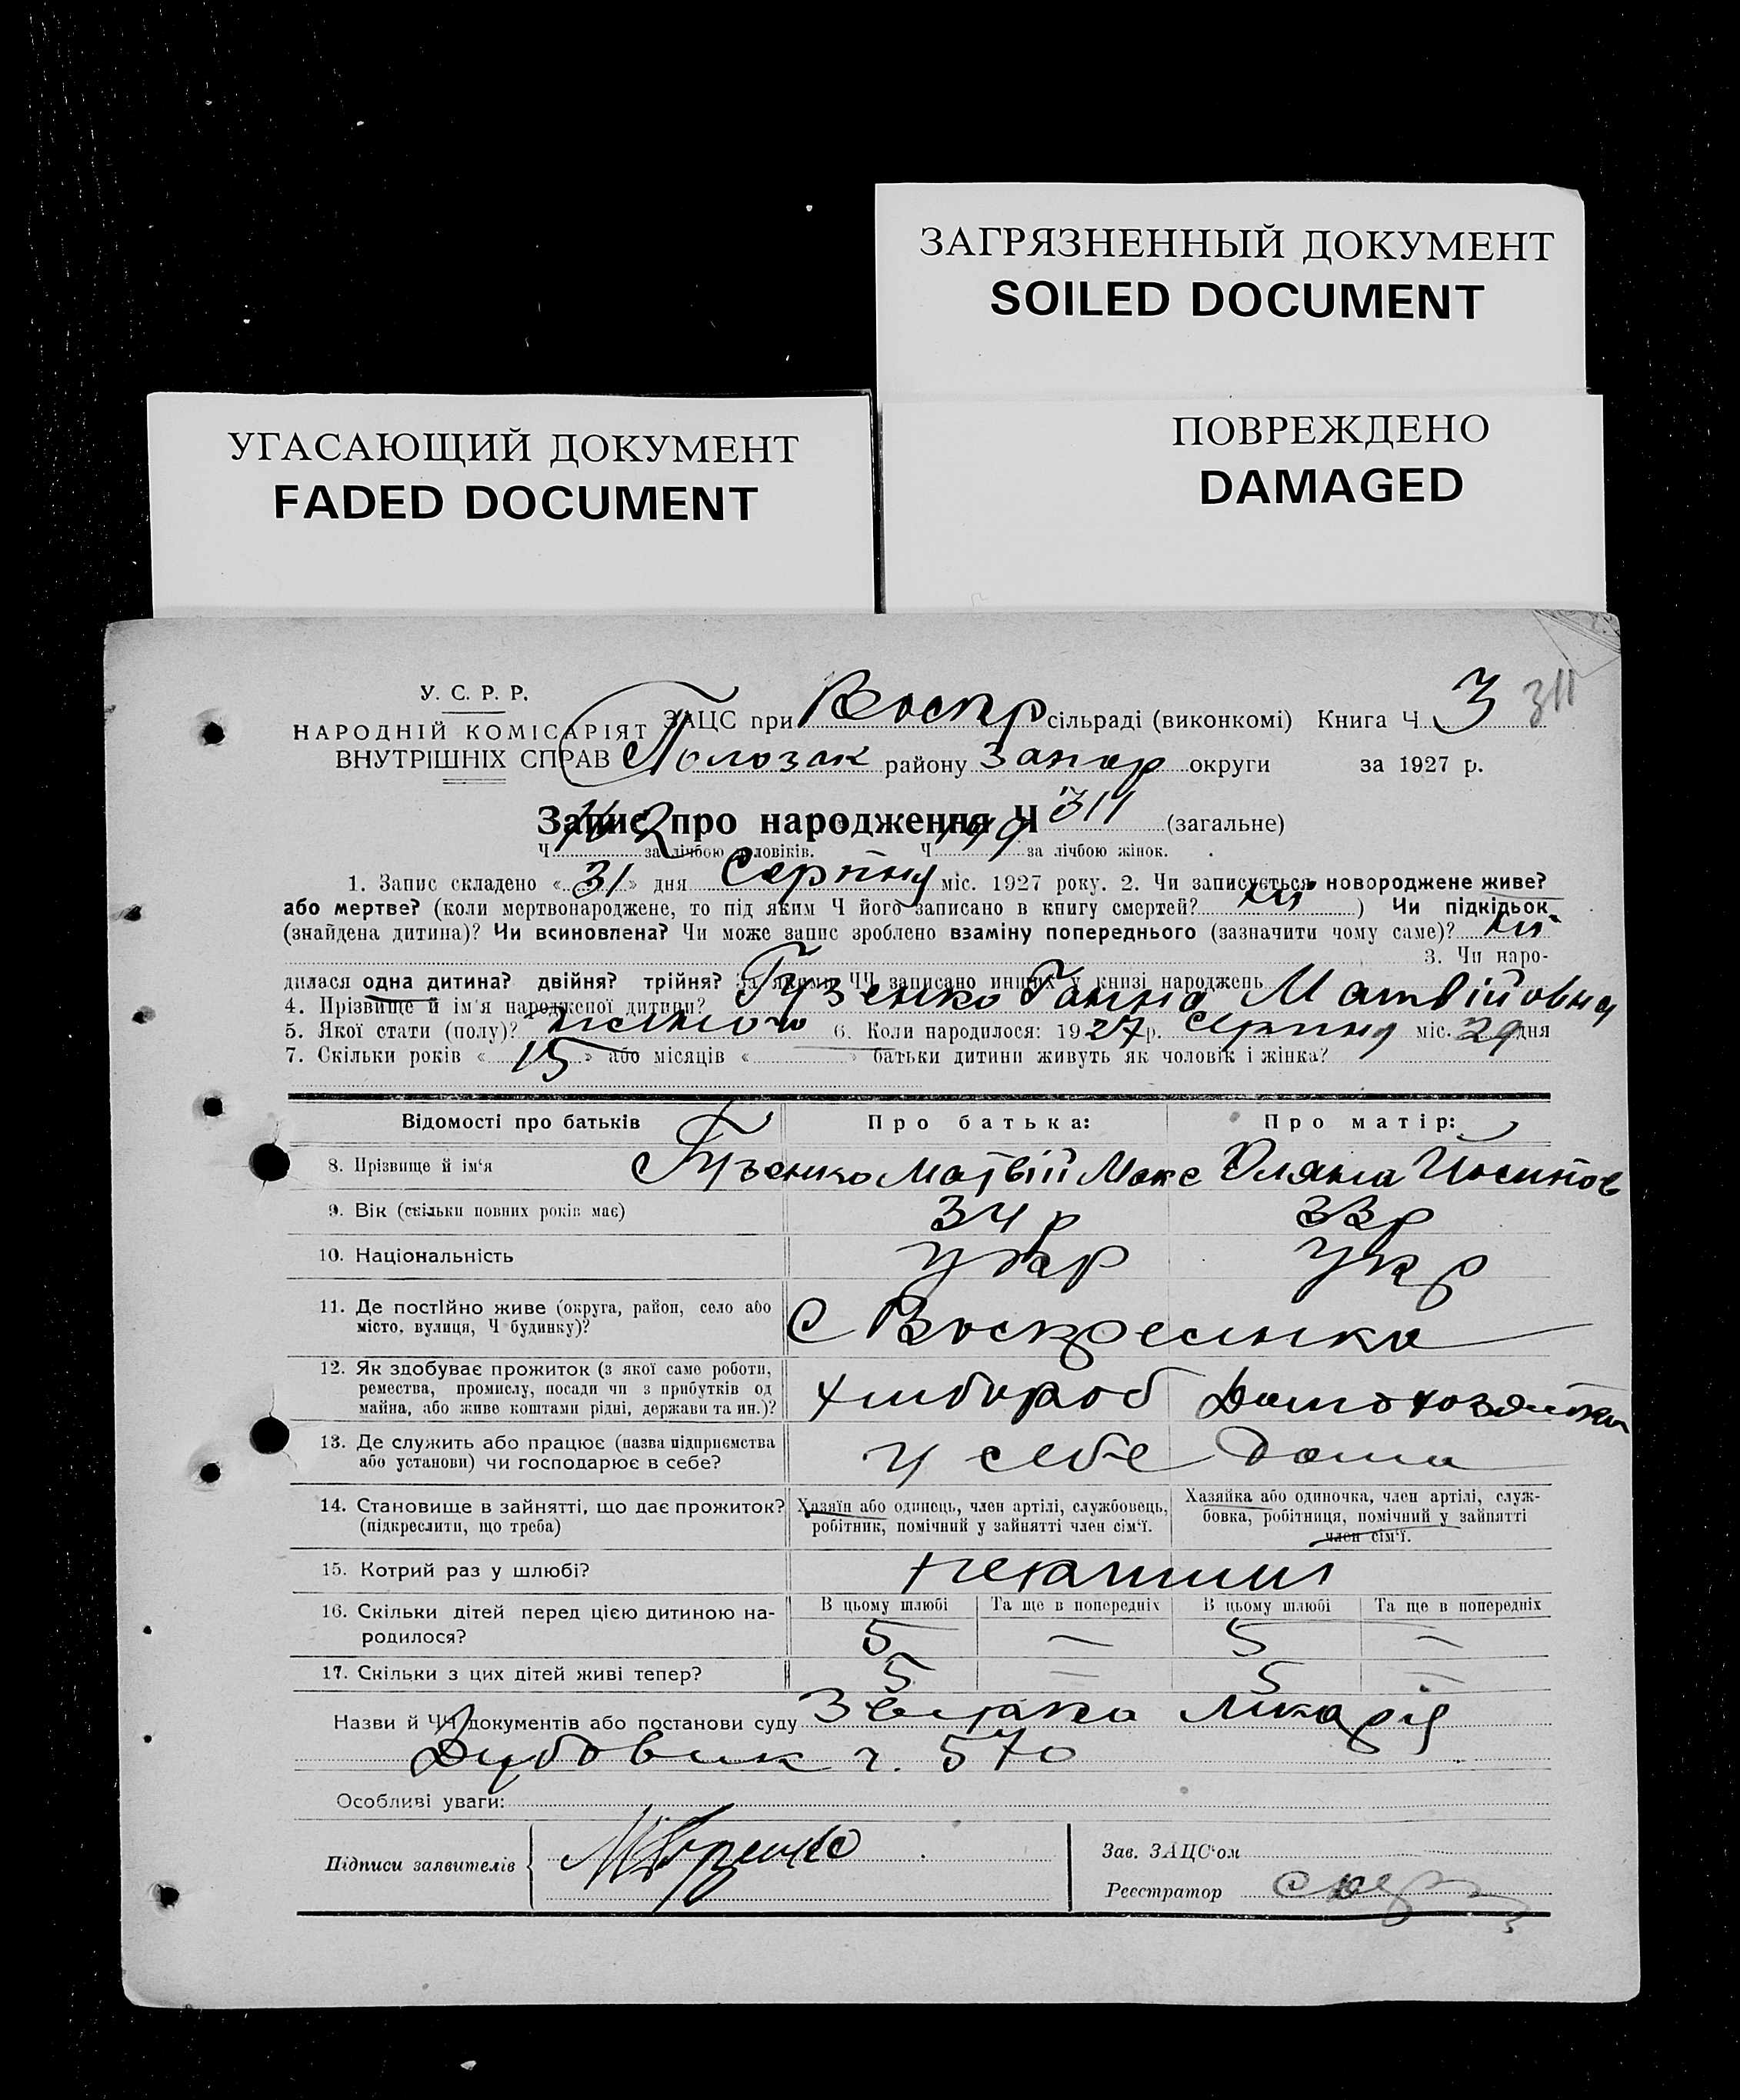 ЗАГРЯЗНЕННЫЙ ДОКУМЕНТ
SOILED DOCUMENT
УГАСАЮЩИЙ ДОКУМЕНТ
FADED DOCUMENT
ПОВРЕЖДЕНО
DAMAGED
311
У. С. Р. Р.
НАРОДНІЙ КОМІСАРІЯТ
ВНУТРІШНІХ СПРАВ
ЗАЦС при Воскр сільраді (виконкомі) Книга Ч 3
Полозак району Запор округи за 1927 р.
Запис про народження Ч 311 (загальне)
Ч за лічбою чоловіків. Ч за лічбою жінок.
1. Запис складено « 31 » дня Серпня міс. 1927 року. 2. Чи записується новороджене живе?
або мертве? (коли мертвонароджене, то під яким Ч його записано в книгу смертей? ні ) Чи підкідьок
(знайдена дитина)? Чи всиновлена? Чи може запис зроблено взаміну попереднього (зазначити чому саме)? ні
3. Чи наро-
дилася одна дитина? двійня? трійня? За якими ЧЧ записано инших у книзі народжень
4. Прізвище й ім'я народженої дитини? Гузенко Ганна Матвійовна
5. Якої стати (полу)? жіночо 6. Коли народилося: 1927 р. Серпня міс. 29 дня
7. Скільки років « 15 » або місяців « » батьки дитини живуть як чоловік і жінка?
Відомості про батьків Про батька: Про матір:
8. Прізвище й ім'я Гузенко Матвій Макс Уляна Йосипов
9. Вік (скільки повних років має) 34 р 33 р
10. Національність Укр Укр
11. Де постійно живе (округа, район, село або
місто, вулиця, Ч будинку)? С Воскресенка
12. Як здобуває прожиток (з якої саме роботи,
ремества, промислу, посади чи з прибутків од
майна, або живе коштами рідні, держави та ин.)? хлибороб Домохозяйка
13. Де служить або працює (назва підприємства
або установи) чи господарює в себе? у себе Дома
14. Становище в зайнятті, що дає прожиток?
(підкреслити, що треба)
Хазяїн або одинець, член артілі, службовець,
робітник, помічний у зайнятті член сім'ї.
Хазяйка або одиночка, член артілі, служ-
бовка, робітниця, помічний у зайнятті
член сім'ї.
15. Котрий раз у шлюбі?
16. Скільки дітей перед цією дитиною на-
родилося?
В цьому шлюбі Та ще в попередніх В цьому шлюбі Та ще в попередніх
5 — 5 —
17. Скільки з цих дітей живі тепер? 5 — 5 —
Назви й ЧЧ документів або постанови суду Звістка Лікарія
Дубовик г. 570
Особливі уваги:
Підписи заявителів М Гузенко
Зав. ЗАЦС'ом
Реєстратор